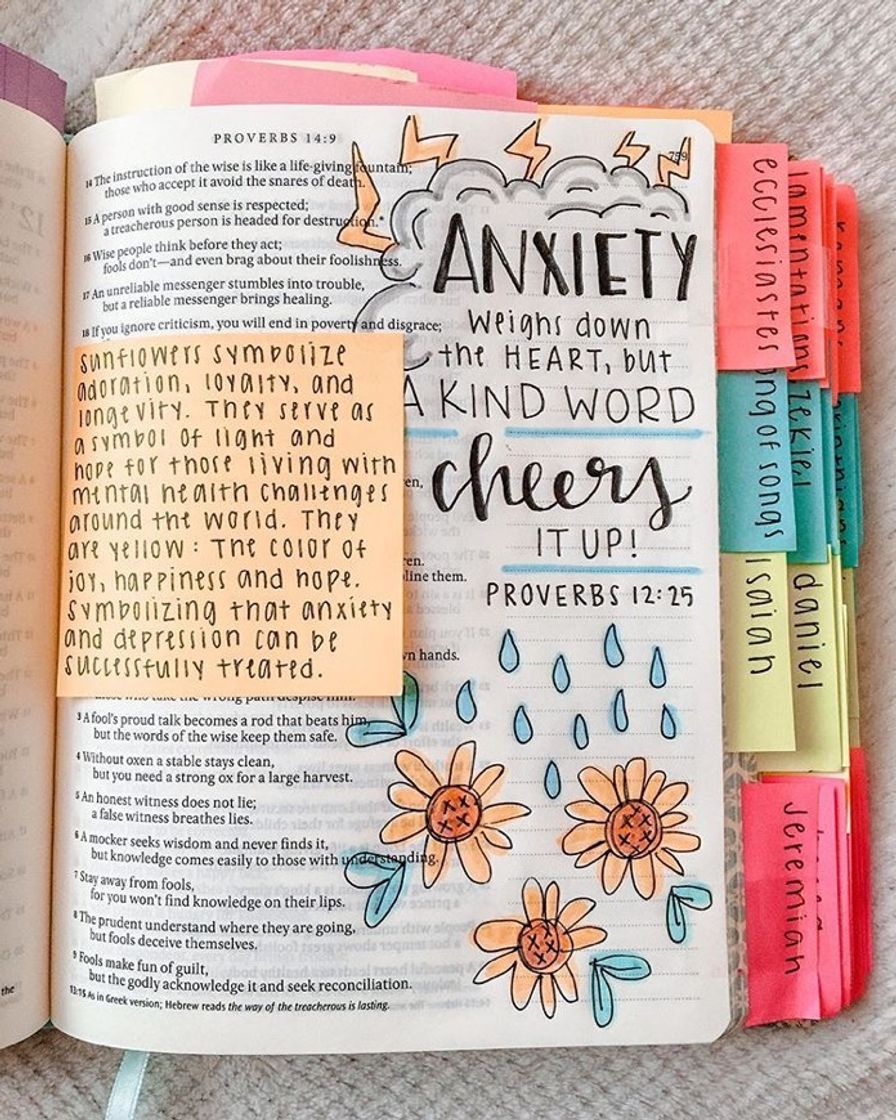 PROVERBS 14:9
759
14 The instruction of the wise is like a life-giving fountain;
those who accept it avoid the snares of death.
15 A person with good sense is respected;
a treacherous person is headed for destruction.*
16 Wise people think before they act;
fools don't—and even brag about their foolishness.
17 An unreliable messenger stumbles into trouble,
but a reliable messenger brings healing.
18 If you ignore criticism, you will end in poverty and disgrace;
sunflowers symbolize
adoration, loyalty, and
longevity. They serve as
a symbol of light and
hope for those living with
mental health challenges
around the world. They
are yellow: The color of
joy, happiness and hope.
Symbolizing that anxiety
and depression can be
successfully treated.
en,
ren.
line them.
vn hands.
those who take the wrong path despise him.
3 A fool's proud talk becomes a rod that beats him,
but the words of the wise keep them safe.
4 Without oxen a stable stays clean,
but you need a strong ox for a large harvest.
5 An honest witness does not lie;
a false witness breathes lies.
6 A mocker seeks wisdom and never finds it,
but knowledge comes easily to those with understanding.
7 Stay away from fools,
for you won't find knowledge on their lips.
8 The prudent understand where they are going,
but fools deceive themselves.
9 Fools make fun of guilt,
but the godly acknowledge it and seek reconciliation.
13:15 As in Greek version; Hebrew reads the way of the treacherous is lasting.
ANXIETY
weighs down
the HEART, but
A KIND WORD
cheers
IT UP!
PROVERBS 12:25
ecclesiastes
lamentations
ong of songs
zekiel
Isaiah
daniel
Jeremiah
the